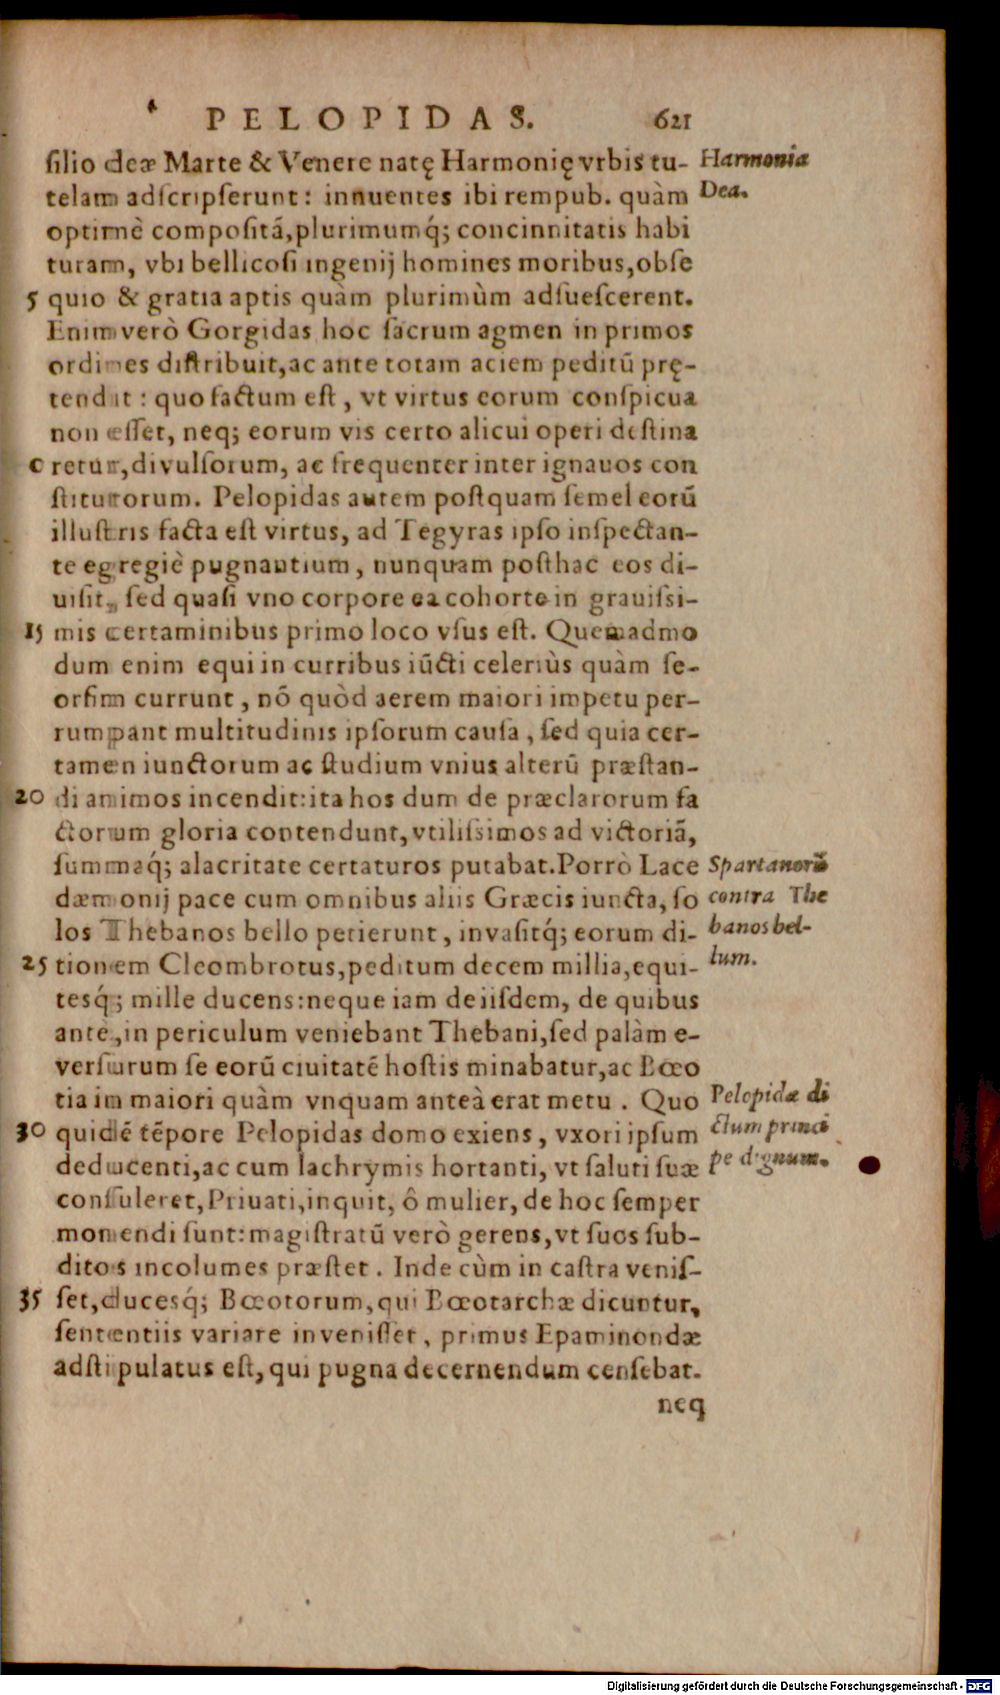 PELOPIDAS. 621
ſilio deæ Marte & Venere natę Harmonię vrbis tu-
telam adſcripſerunt: innuentes ibi rempub. quàm
optimè compoſitã, plurimumq́; concinnitatis habi
turam, vbi bellicoſi ingenij homines moribus, obſe
5 quio & gratia aptis quàm plurimùm adſueſcerent.
Enim verò Gorgidas hoc ſacrum agmen in primos
ordines diſtribuit, ac ante totam aciem peditũ prę-
tendit: quo factum eſt, vt virtus eorum conſpicua
non eſſet, neq; eorum vis certo alicui operi deſtina
0 retur, divulſorum, ac frequenter inter ignauos con
ſtitutorum. Pelopidas autem poſtquam ſemel eorũ
illuſtris facta eſt virtus, ad Tegyras ipſo inſpectan-
te egregiè pugnantium, nunquam poſthac eos di-
uiſit, ſed quaſi vno corpore ea cohorte in grauiſsi-
15 mis certaminibus primo loco vſus eſt. Quemadmo
dum enim equi in curribus iũcti celeriùs quàm ſe-
orſim currunt, nõ quòd aerem maiori impetu per-
rumpant multitudinis ipſorum cauſa, ſed quia cer-
tamen iunctorum ac ſtudium vnius alterũ præſtan-
20 di animos incendit: ita hos dum de præclarorum fa
ctorum gloria contendunt, vtiliſsimos ad victoriã,
ſummaq́; alacritate certaturos putabat. Porrò Lace
dæmonij pace cum omnibus aliis Græcis iuncta, ſo
los Thebanos bello petierunt, invaſitq́; eorum di-
25 tionem Cleombrotus, peditum decem millia, equi-
tesq́; mille ducens: neque iam de iiſdem, de quibus
antè, in periculum veniebant Thebani, ſed palàm e-
verſurum ſe eorũ ciuitatẽ hoſtis minabatur, ac Bœo
tia in maiori quàm vnquam anteà erat metu. Quo
30 quidẽ tẽpore Pelopidas domo exiens, vxori ipſum
deducenti, ac cum lachrymis hortanti, vt ſaluti ſuæ
conſuleret, Priuati, inquit, ô mulier, de hoc ſemper
monendi ſunt: magiſtratũ verò gerens, vt ſuos ſub-
ditos incolumes præſtet. Inde cùm in caſtra veniſ-
35 ſet, ducesq́; Bœotorum, qui Bœotarchæ dicuntur,
ſententiis variare inveniſſet, primus Epaminondæ
adſtipulatus eſt, qui pugna decernendum cenſebat.
neq
Harmonia
Dea.
Spartanorũ
contra The
banos bel-
lum.
Pelopidæ di
ctum princi
pe dignum.
Digitalisierung gefördert durch die Deutsche Forschungsgemeinschaft - DFG